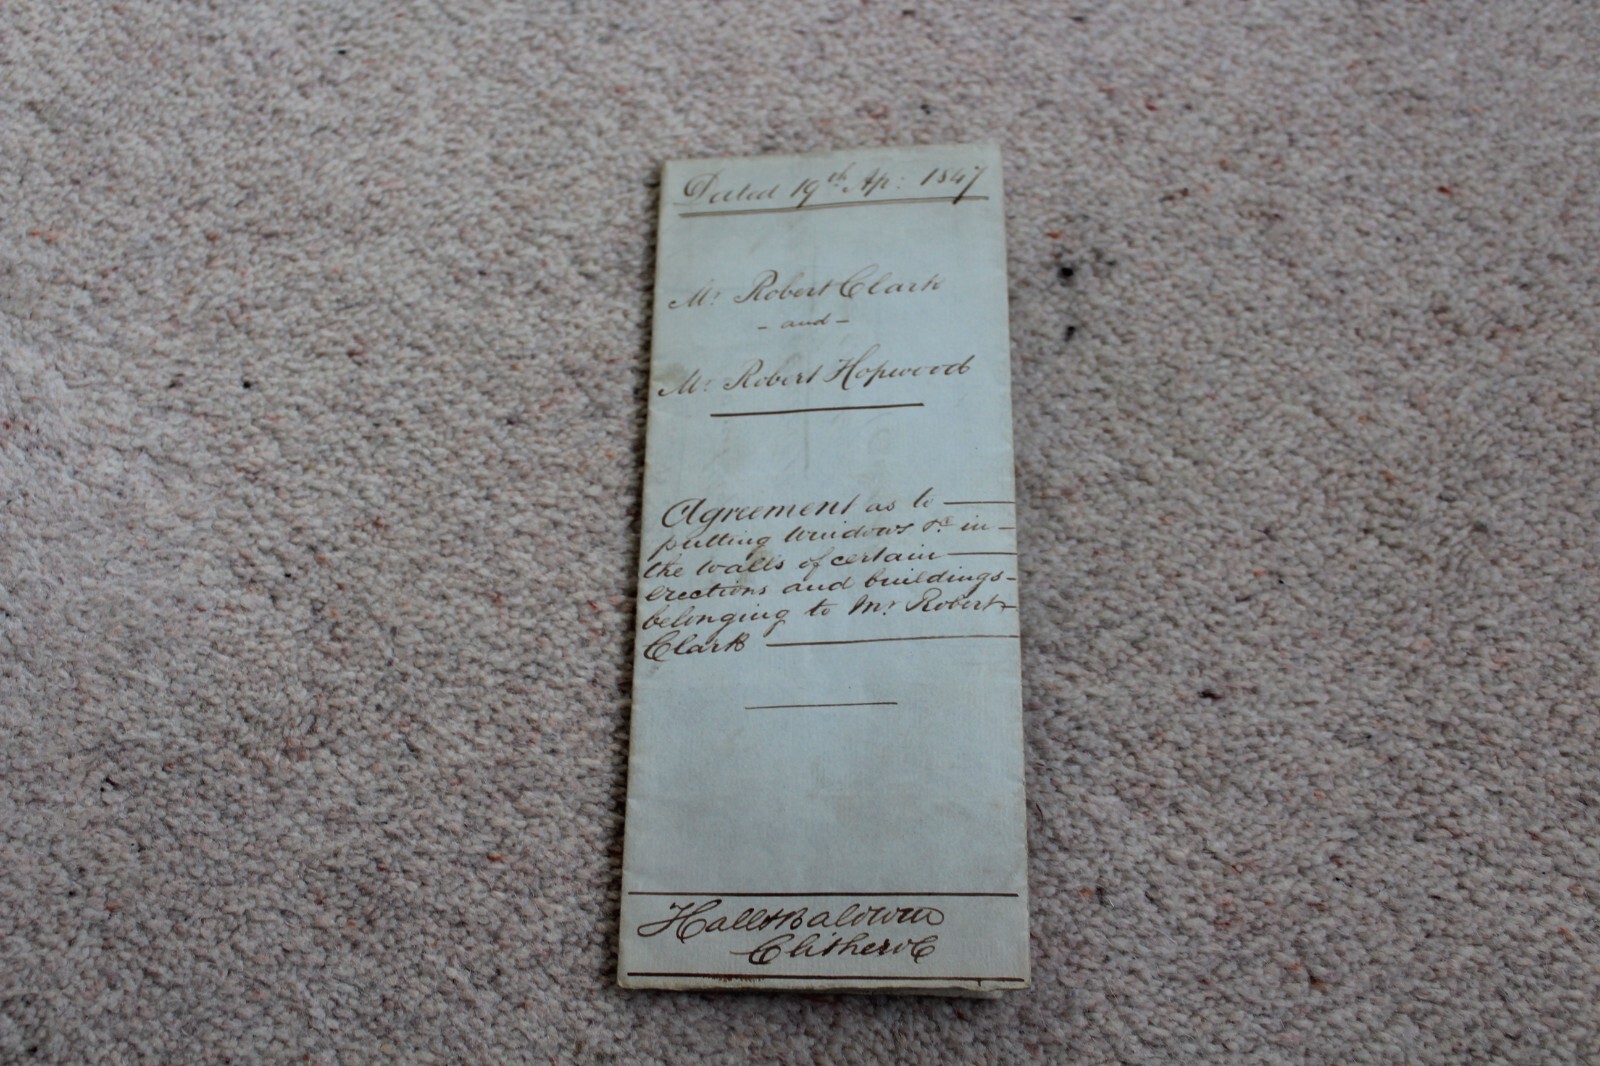 Dated 19th Ap: 1847
Mr Robert Clark
- and -
Mr Robert Hopwood
Agreement as to
putting windows &c in
the walls of certain
erections and buildings
belonging to Mr Robert
Clark
Hall & Baldwin
Clitheroe